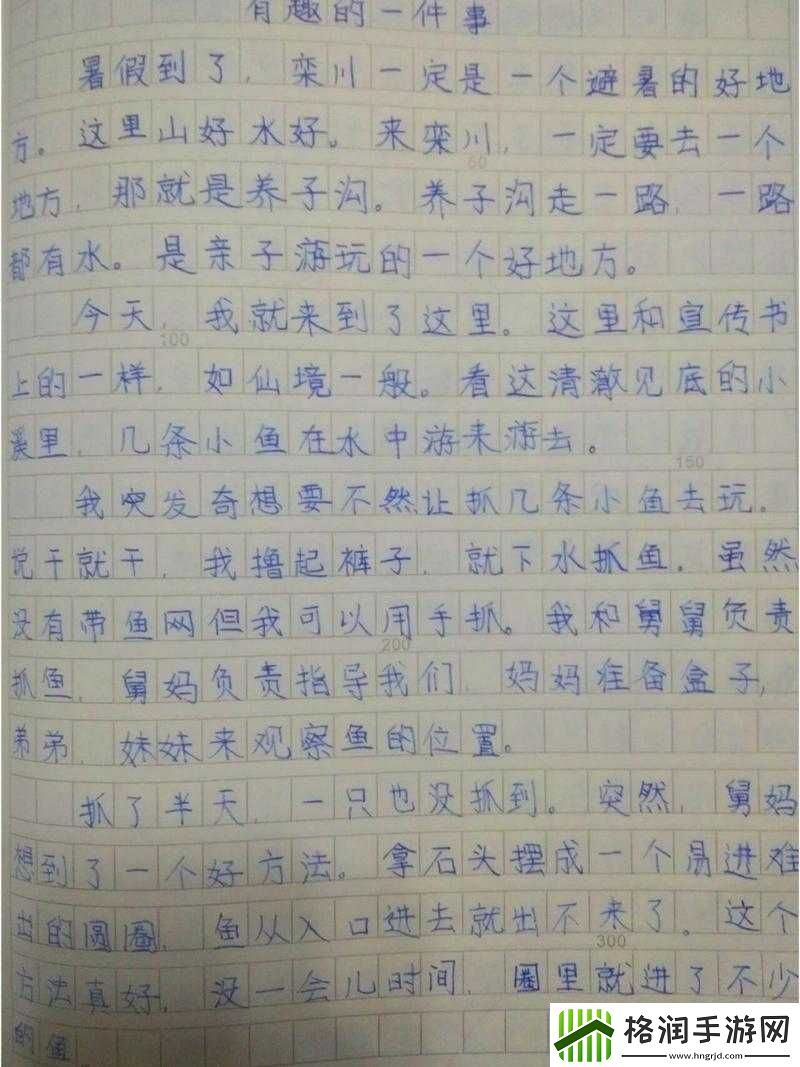 有趣的一件事
暑假到了，栾川一定是一个避暑的好地
方。这里山好水好。来栾川，一定要去一个
地方，那就是养子沟。养子沟走一路，一路
都有水。是亲子游玩的一个好地方。
今天，我就来到了这里。这里和宣传书
100
上的一样，如仙境一般。看这清澈见底的小
溪里，几条小鱼在水中游来游去。
150
我突发奇想要不然让抓几条小鱼去玩。
说干就干，我撸起裤子，就下水抓鱼。虽然
没有带鱼网但我可以用手抓。我和舅舅负责
200
抓鱼，舅妈负责指导我们，妈妈准备盒子，
弟弟，妹妹来观察鱼的位置。
抓了半天，一只也没抓到。突然，舅妈
想到了一个好方法。拿石头摆成一个易进难
出的圆圈，鱼从入口进去就出不来了。这个
300
方法真好，没一会儿时间，圈里就进了不少
的鱼
格润手游网
www.hngrjd.com